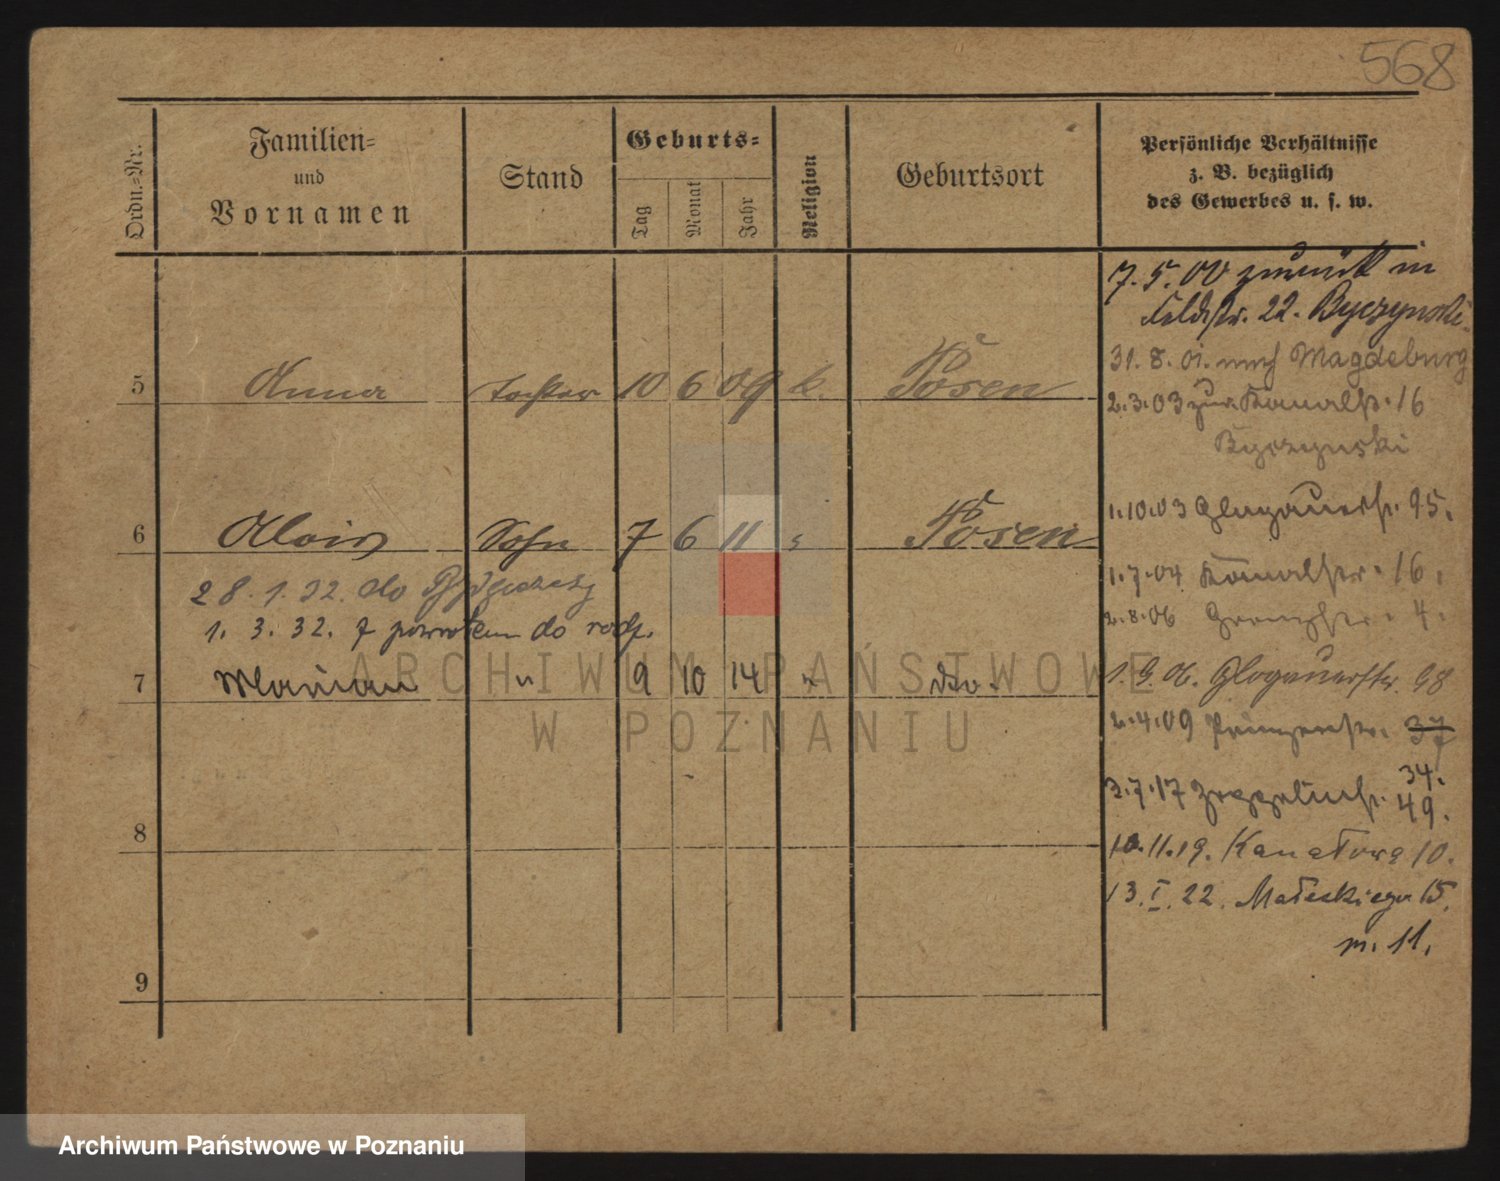 568
Ordn.-Nr.
Familien-
und
Vornamen
Stand
Geburts-
Tag
Monat
Jahr
Religion
Geburtsort
Persönliche Verhältnisse
z. B. bezüglich
des Gewerbes u. s. w.
7. 5. 00 zurück in
Feldstr. 22. Byczynski.
31. 8. 01. nach Magdeburg
5 Anna Tochter 10 6 09 k. Posen
2.3.03 zur Kanalstr. 16
Byczynski
1.10.03 Glogauerstr. 95.
6 Alois Sohn 7 6 11 " Posen
1.7.04 Kanalstr. 16.
28. 1. 32. do
2.8.06 Grenzstr. 4.
1. 3. 32. z powrotem do rodz.
7 Marian " 9 10 14 " dto.
1.9.06. Glogauerstr. 98
2.4.09 Prinzenstr. 37
34.
3.7.17 Zeppelinstr. 49.
8
10.11.19. Kanałowa 10.
13. I. 22. Małeckiego 15.
m. 11.
9
ARCHIWUM PAŃSTWOWE
W POZNANIU
Archiwum Państwowe w Poznaniu